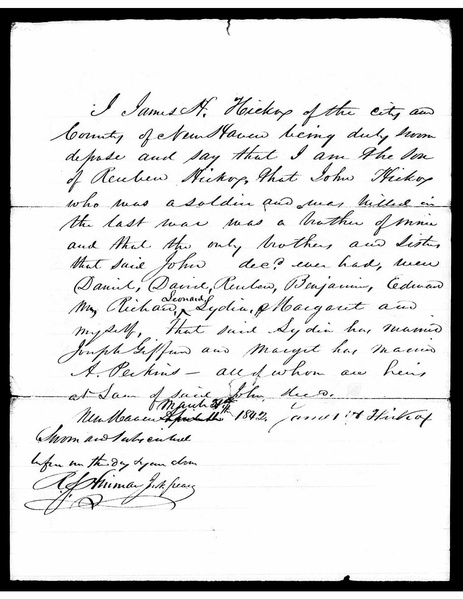 I James H. Hickox of the city and
County of New Haven being duly sworn
depose and say that I am the son
of Reuben Hickox, that John Hickox
who was a soldier and was killed in
the last war was a brother of mine
and that the only brothers and sisters
that said John decd ever had, were
Daniel, David, Reuben, Benjamin, Edward
Wm, Richard, Leonard, Lydia, & Margaret and
myself, That said Lydia has married
Joseph Giffin and Margt has married
A. Perkins – all of whom are heirs
at Law of said John, decd.
New Haven March 1842. James H Hickox
Sworn and subscribed
before me the day & year above
R. Hinman Jus. Peace